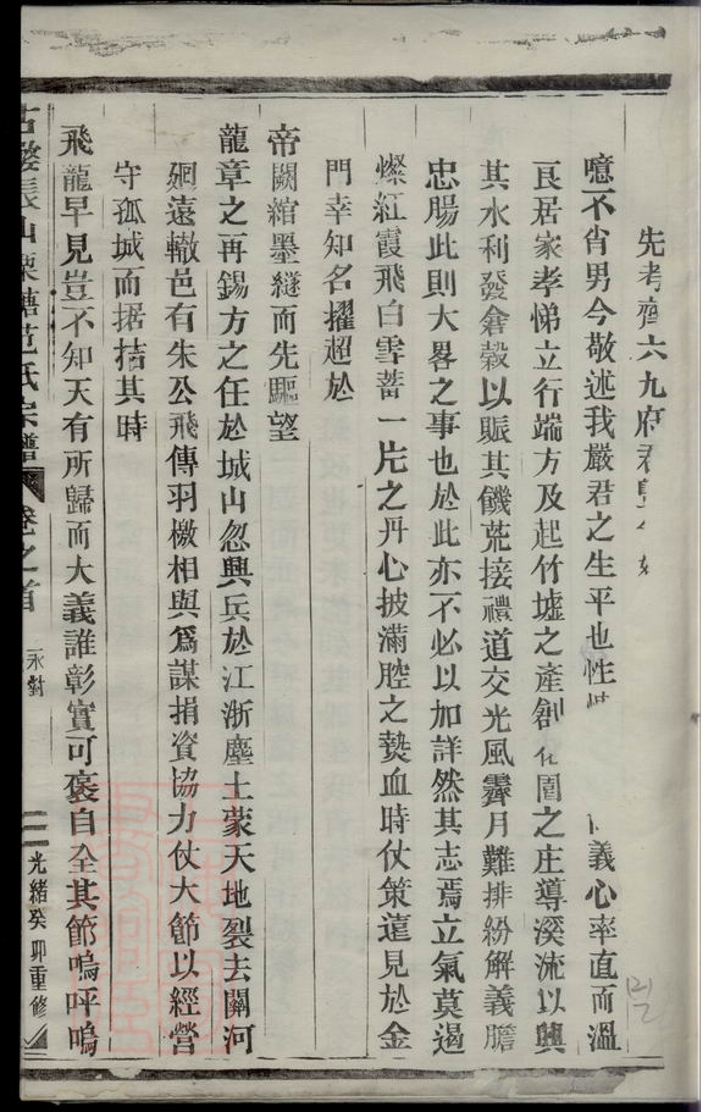 先考齊六九府君
噫不肖男今敬述我嚴君之生平也性 義心率直而溫
良居家孝悌立行端方及起竹墟之產創 圍之庄導溪流以興
其水利發倉穀以賑其饑荒接禮道交光風霽月難排紛解義膽
忠腸此則大畧之事也於此亦不必以加詳然其志焉立氣莫遏
燦紅霞飛白雪蓄一片之丹心披滿腔之熱血時仗策遠見於金
門幸知名擢超於
帝闕綰墨縫而先驅望
龍章之再錫方之任於城山忽興兵於江浙塵土蒙天地裂去關河
廻遠轍邑有朱公飛傳羽檄相與爲謀捐資協力仗大節以經營
守孤城而拮其時
飛龍早見豈不知天有所歸而大義誰彰實可褒自全其節嗚呼嗚
古婺長山栗塘范氏宗譜 卷之首 永對 二 光緒癸卯重修